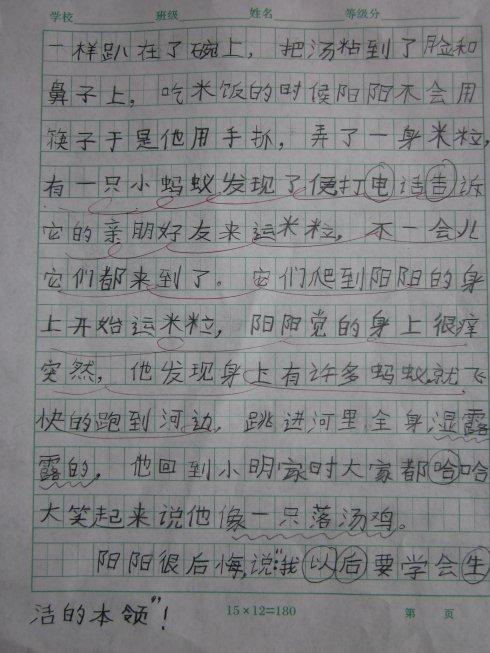 学校 班级 姓名 等级分
一样趴在了碗上，把汤粘到了脸和
鼻子上，吃米饭的时候阳阳不会用
筷子于是他用手抓，弄了一身米粒，
有一只小蚂蚁发现了便打电话告诉
它的亲朋好友来运米粒，不一会儿
它们都来到了。它们爬到阳阳的身
上开始运米粒，阳阳觉的身上很痒
突然，他发现身上有许多蚂蚁就飞
快的跑到河边，跳进河里全身湿露
露的，他回到小明家时大家都哈哈
大笑起来说他像一只落汤鸡。
阳阳很后悔，说:“我以后要学会生
活的本领”！
15×12=180 第 页